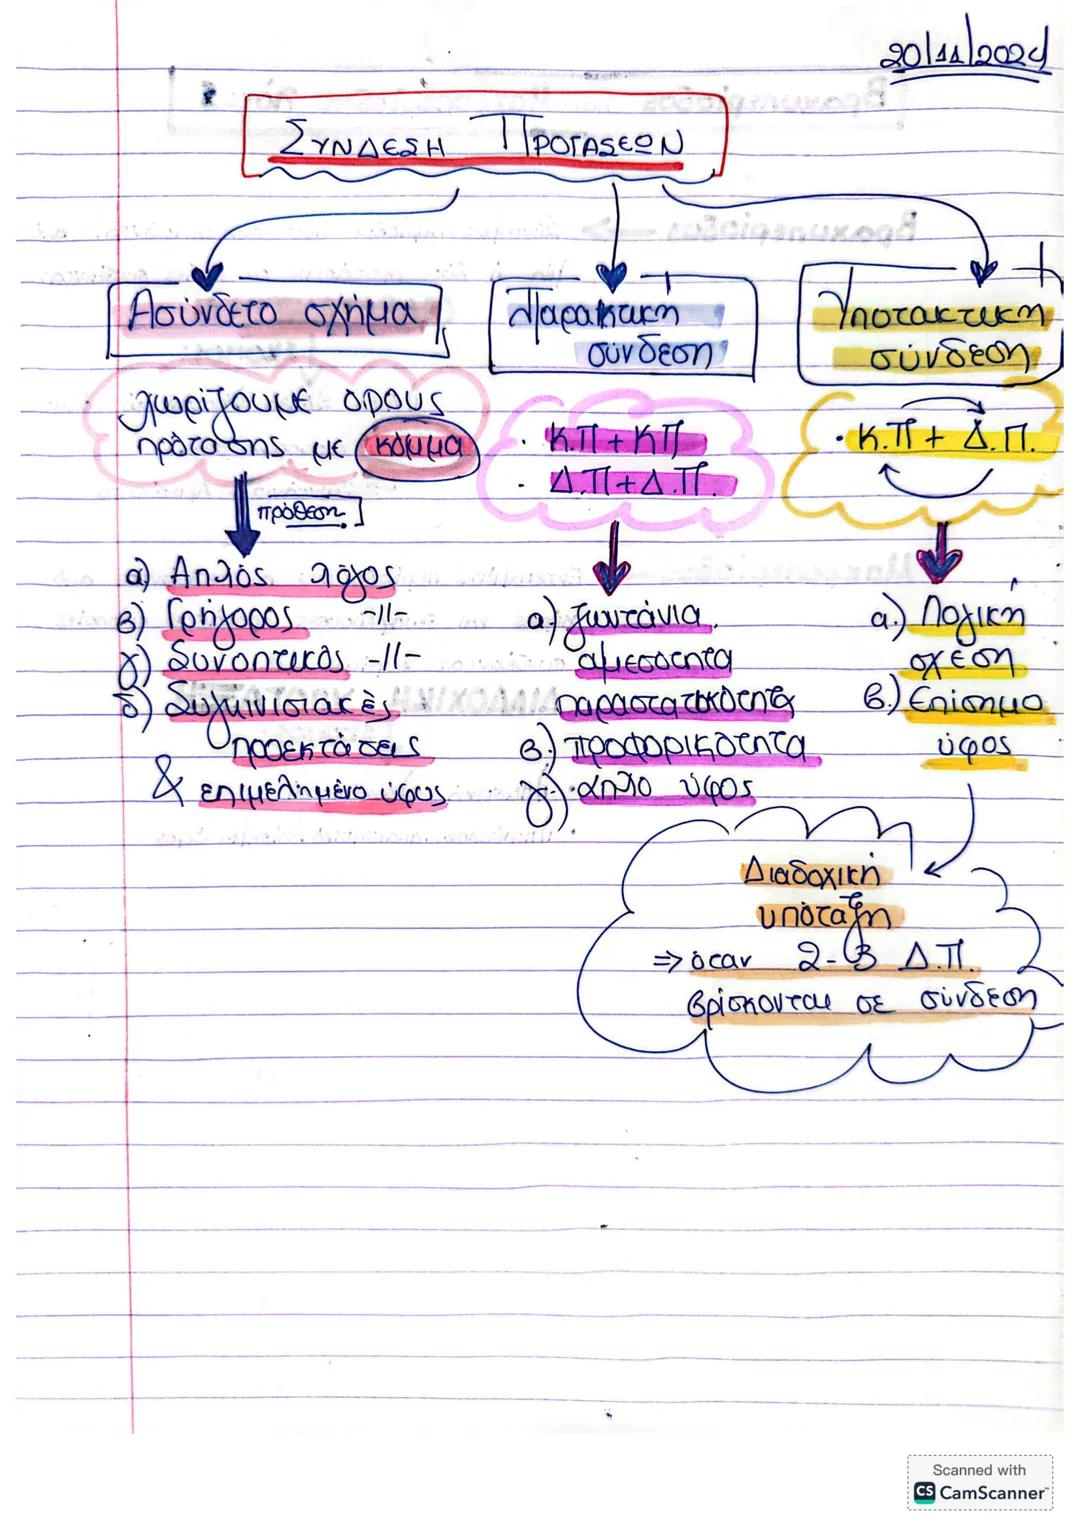 20/11/2024
ΣΥΝΔΕΣΗ ΠΡΟΤΑΣΕΩΝ
Ασύνδετο σχήμα
χωρίζουμε όρους
πρότασης με κόμμα
πρόθεση
α) Απλός λόγος
β) Γρήγορος -//-
γ) Συνοπτικός -//-
δ)
προεκτάσεις
& επιμελημένο ύφος
Παρατακτική
σύνδεση
· Κ.Π + Κ.Π
· Δ.Π + Δ.Π.
α.) ζωντάνια,
αμεσότητα
παραστατικότητα
β.) προφορικότητα
γ.) απλο ύφος
Υποτακτική
σύνδεση
· Κ.Π + Δ.Π.
α.) Λογική
σχέση
β.) Επίσημο
ύφος
Διαδοχική
υπόταξη
⇒ όταν 2-3 Δ.Π.
βρίσκονται σε σύνδεση
Scanned with
CS CamScanner